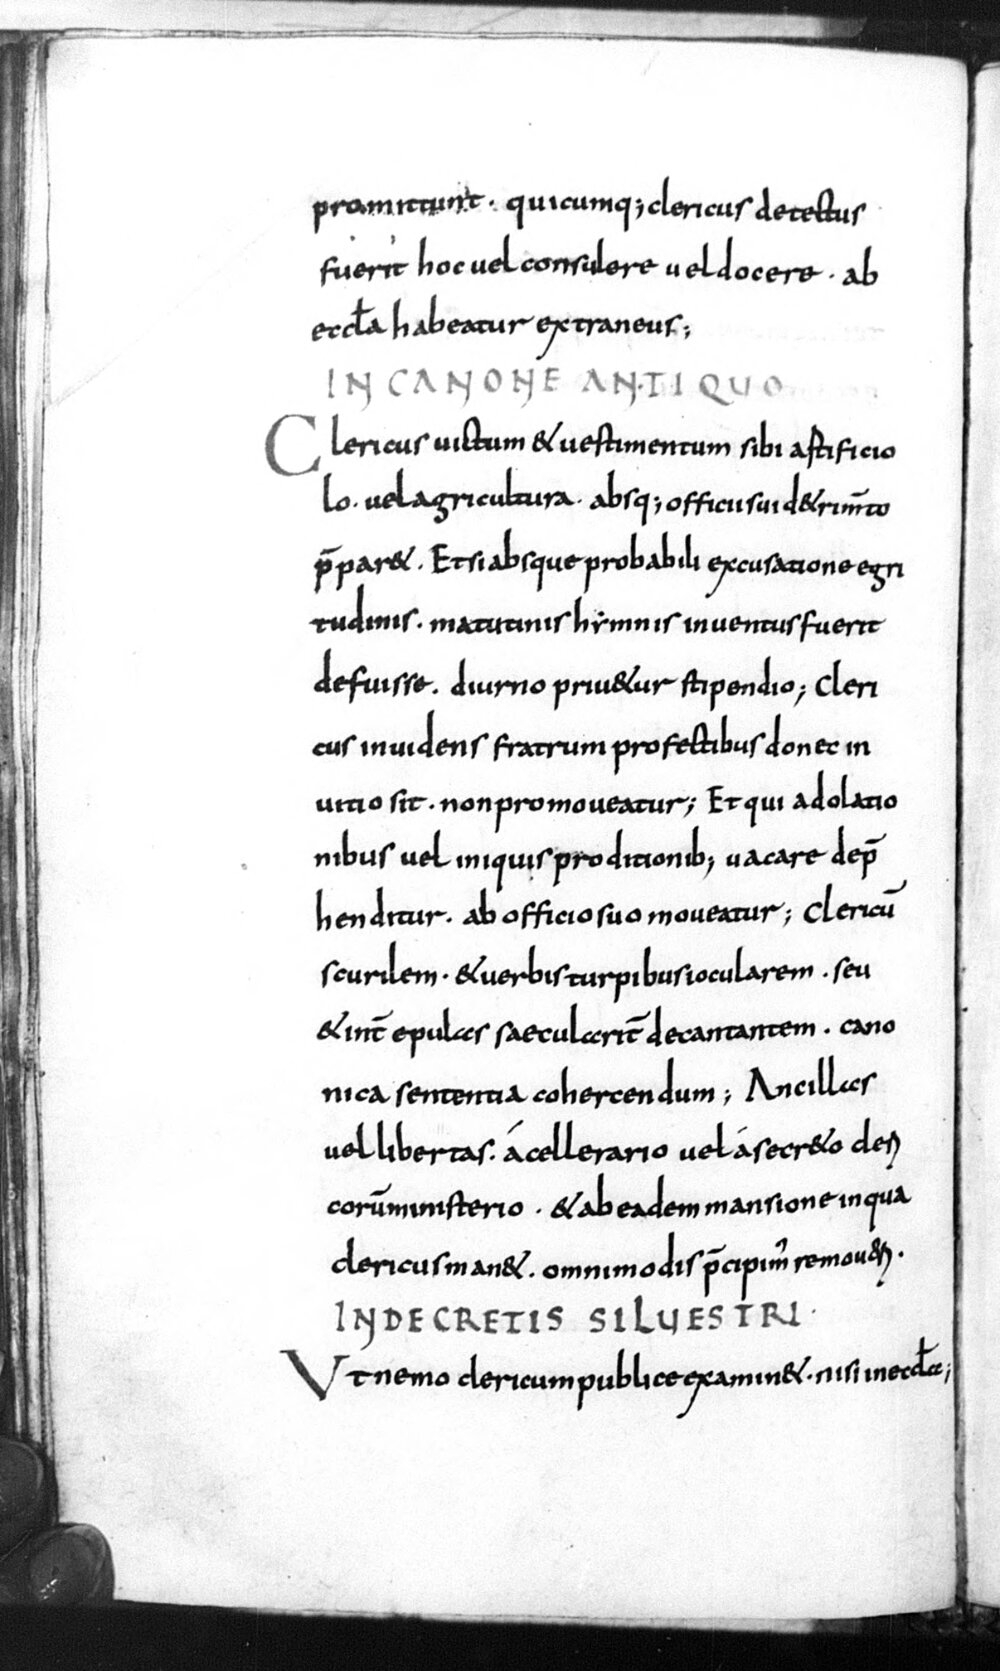 promittunt. quicumq; clericus detectus
fuerit hoc uel consulere uel docere. ab
eccła habeatur extraneus;
IN CANONE ANTIQUO
Clericus uictum & uestimentum sibi astificio
lo. uel agricultura. absq; officii sui d&rim̄to
p̄par&. Et si absque probabili excusatione egri
tudinis. matutinis hẏmnis inuentus fuerit
defuisse. diurno priu&ur stipendio; Cleri
cus inuidens fratrum profectibus donec in
uitio sit. non promoueatur; Et qui adolatio
nibus uel iniquis proditionib; uacare dep̄
henditur. ab officio suo moueatur; Clericū
scurilem. & uerbis turpibus iocularem. seu
& int̄ epulas saecularit̄ decantantem. cano
nica sententia cohercendum; Ancillas
uel libertas. á cellerario uel á secr&o den
corū ministerio. & ab eadem mansione in qua
clericus man&. omnimodis p̄cipim̉ remouen.
IN DECRETIS SILUESTRI.
Vt nemo clericum publice examin&. nisi in eccła;